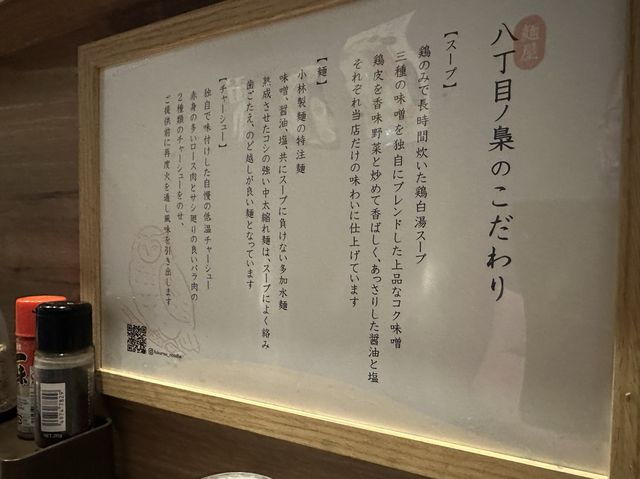 麺屋
八丁目ノ梟のこだわり
【スープ】
鶏のみで長時間炊いた鶏白湯スープ
三種の味噌を独自にブレンドした上品なコク味噌
鶏皮を香味野菜と炒めて香ばしく、あっさりした醤油と塩
それぞれ当店だけの味わいに仕上げています
【麺】
小林製麺の特注麺
味噌、醤油、塩、共にスープに負けない多加水麺
熟成させたコシの強い中太縮れ麺は、スープによく絡み
歯ごたえ、のど越しが良い麺となっています
【チャーシュー】
独自で味付けした自慢の低温チャーシュー
赤身の多いロース肉とサシ廻りの良いバラ肉の
2種類のチャーシューをのせ、
ご提供前に再度火を通し風味を引き出します
一味